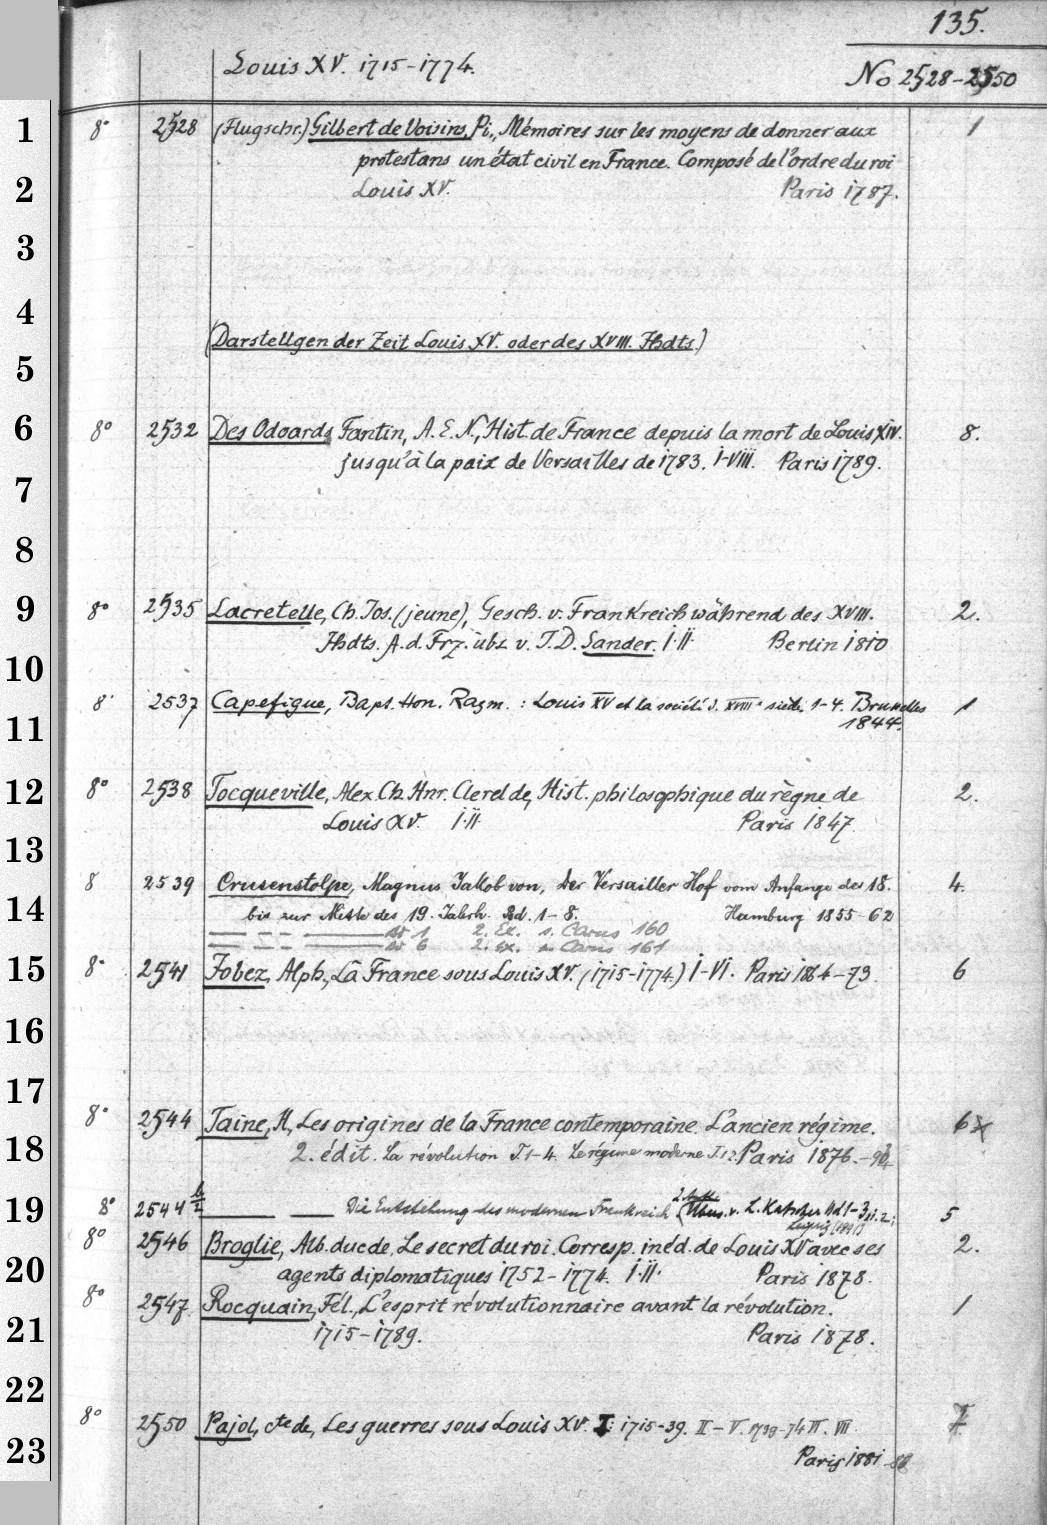 135.
Louis XV. 1715-1774.
No 2528-2550
1
8° 2528 (Flugschr.) Gilbert de Voisins, Pi., Mémoires sur les moyens de donner aux 1
protestans un état civil en France. Composé de l'ordre du roi
2
Louis XV. Paris 1787.
3
4
(Darstellgen der Zeit Louis XV. oder des XVIII. Jhdts.)
5
6
8° 2532 Des Odoards Fantin, A. E. N., Hist. de France depuis la mort de Louis XIV. 8.
jusqu'à la paix de Versailles de 1783. I-VIII. Paris 1789.
7
8
9
8° 2535 Lacretelle, Ch. Jos. (jeune), Gesch. v. Frankreich während des XVIII. 2.
Jhdts. A. d. Frz. übs v. J. D. Sander. I.II Berlin 1810
10
8° 2537 Capefigue, Bapt. Hon. Raym. : Louis XV et la société d. XVIIIe siècle 1-4. Bruxelles 1
11
1844.
12
8° 2538 Tocqueville, Alex. Ch. Hnr. Clerel de, Hist. philosophique du règne de 2.
Louis XV. I.II. Paris 1847
13
8 2539 Crusenstolpe, Magnus Jakob von, Der Versailler Hof vom Anfange des 18. 4.
14
bis zur Mitte des 19. Jahrh. Bd. 1-8. Hamburg 1855-62
Bd 1 2. Ex. s. Carus 160
Bd 6 2. Ex. s. Carus 161
15
8° 2541 Jobez, Alph., La France sous Louis XV. (1715-1774.) I-VI. Paris 1864-73. 6
16
17
8° 2544 Taine, H., Les origines de la France contemporaine. L'ancien régime. 6
18
2. édit. La révolution T. 1-4. Le régime moderne T. 1 2. Paris 1876.-
19
8° 2544 Die Entstehung des modernen Frankreich Übers. v. L. Katscher Bd 1-3 5
Leipzig
8° 2546 Broglie, Alb. duc de, Le secret du roi. Corresp. inéd. de Louis XV avec ses 2.
20
agents diplomatiques 1752-1774. I.II. Paris 1878.
8° 2547 Rocquain, Fél., L'esprit révolutionnaire avant la révolution. 1
21
1715-1789. Paris 1878.
22
8° 2550 Pajol, cte de, Les guerres sous Louis XV. I: 1715-39. II-V. 1739-74 VI. VII 7
23
Paris 1881